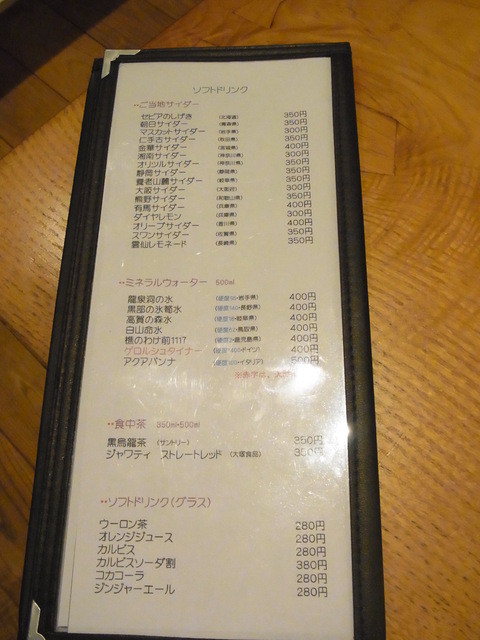 ソフトドリンク
••ご当地サイダー
セピアのしげき (北海道) 350円
朝日サイダー 350円
マスカットサイダー (岩手県) 300円
仁手古サイダー (秋田県) 350円
金華サイダー (宮城県) 400円
湘南サイダー (神奈川県) 300円
オリツルサイダー (神奈川県) 350円
静岡サイダー (静岡県) 350円
養老山麓サイダー (岐阜県) 350円
大阪サイダー (大阪府) 300円
熊野サイダー (和歌山県) 350円
有馬サイダー (兵庫県) 400円
ダイヤレモン (兵庫県) 300円
オリーブサイダー (香川県) 400円
スワンサイダー (佐賀県) 350円
雲仙レモネード (長崎県) 350円
••ミネラルウォーター 500ml
龍泉洞の水 岩手県) 400円
黒部の氷筍水 長野県) 400円
高賀の森水 岐阜県) 400円
白山命水 400円
樵のわけ前1117 鹿児島県) 400円
ゲロルシュタイナー ドイツ) 400円
アクアパンナ イタリア) 500円
※赤字は、
••食中茶 350ml-500ml
黒烏龍茶 (サントリー) 350円
ジャワティ ストレートレッド (大塚食品) 350円
••ソフトドリンク(グラス)
ウーロン茶 280円
オレンジジュース 280円
カルピス 280円
カルピスソーダ割 380円
コカコーラ 280円
ジンジャーエール 280円